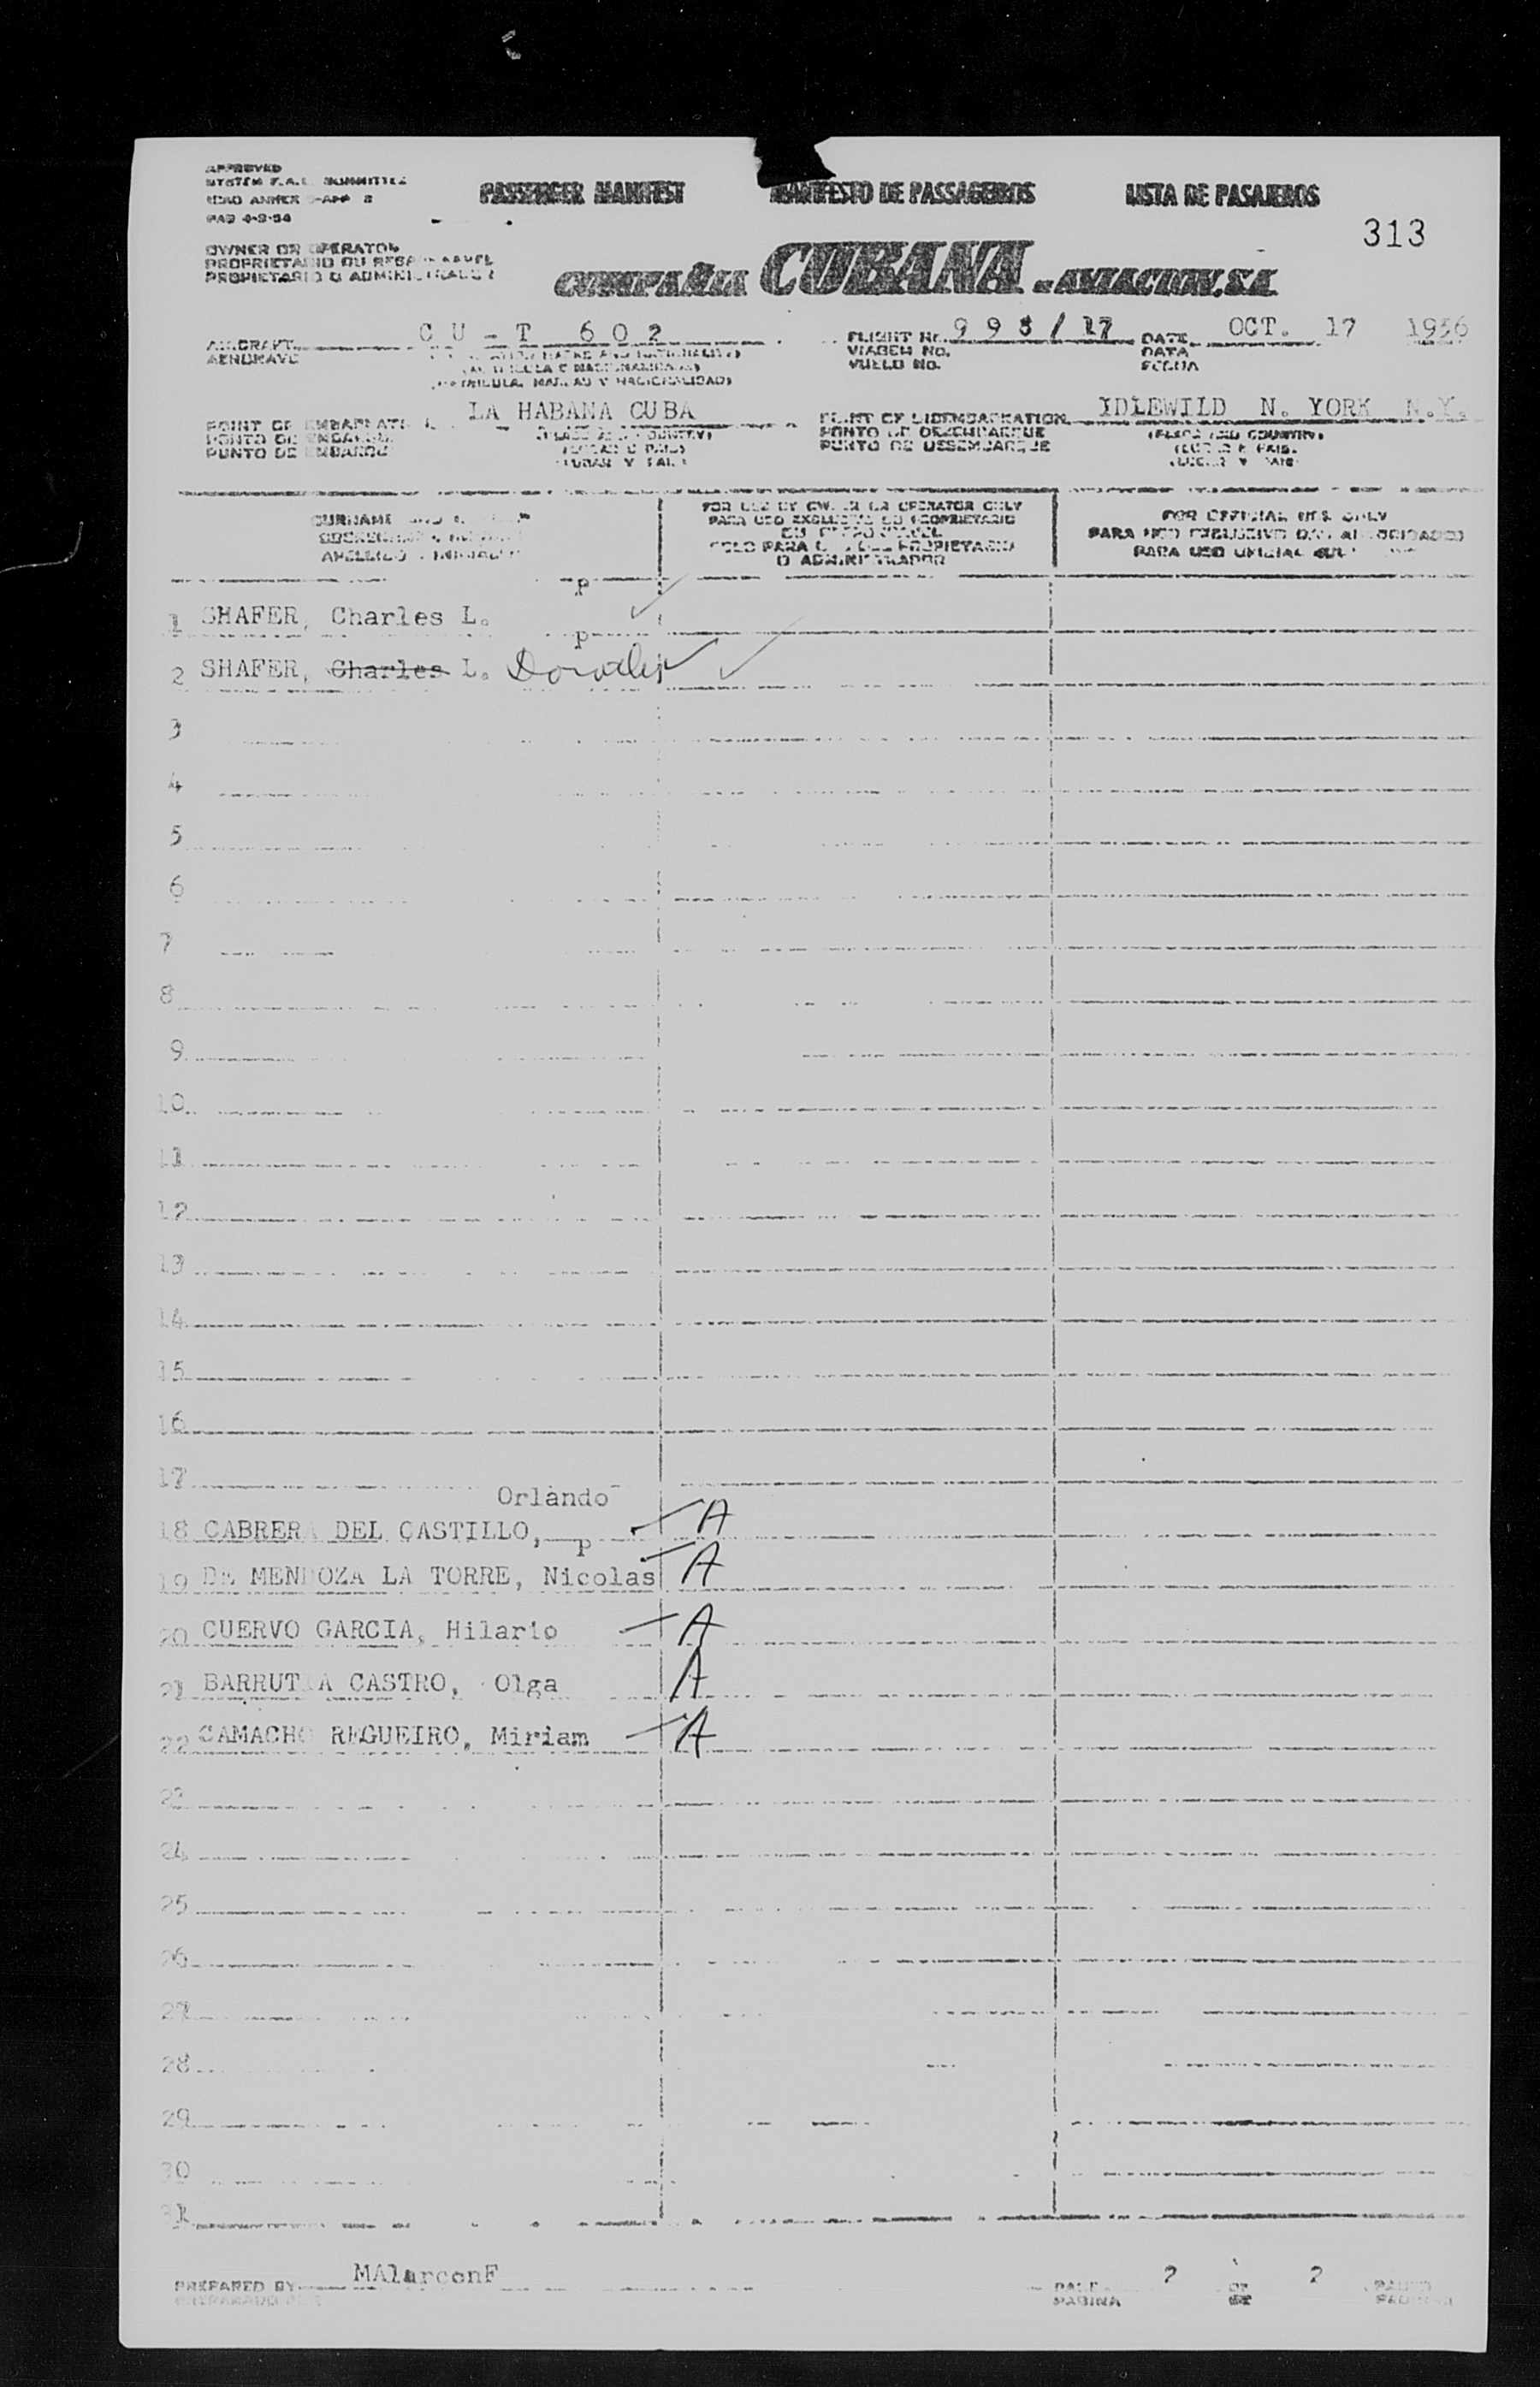 APPROVED
SYSTEM F.A.L. COMMITTEE
ICAO ANNEX 9-APP 2
PAB 4-9-54
PASSENGER MANIFEST MANIFESTO DE PASSAGEIROS LISTA DE PASAJEROS
313
OWNER OR OPERATOR
PROPRIETARIO OU RESPONSAVEL
PROPIETARIO O ADMINISTRADOR
COMPAÑIA CUBANA de AVIACION, S.A.
AIRCRAFT CU-T 602 FLIGHT No. 995/17 DATE OCT. 17 1956
AERONAVE VIAGEM No. DATA
VUELO No. FECHA
(MATRICULA, MARCAS Y NACIONALIDAD)
POINT OF EMBARKATION LA HABANA CUBA POINT OF DISEMBARKATION IDLEWILD N. YORK N.Y.
PONTO DE EMBARQUE (PLACE AND COUNTRY) PONTO DE DESEMBARQUE (PLACE AND COUNTRY)
PUNTO DE EMBARQUE (LUGAR E PAIS) PUERTO DE DESEMBARQUE (LUGAR E PAIS)
(LUGAR Y PAIS) (LUGAR Y PAIS)
SURNAME AND INITIALS FOR USE BY OWNER OR OPERATOR ONLY FOR OFFICIAL USE ONLY
PARA USO EXCLUSIVO DO PROPRIETARIO PARA USO EXCLUSIVO DAS AUTORIDADES
OU RESPONSAVEL PARA USO OFICIAL
APELLIDO INICIALES SOLO PARA USO DEL PROPIETARIO
O ADMINISTRADOR
p
1 SHAFER, Charles L.
p
2 SHAFER, Charles L.
3
4
5
6
7
8
9
10
11
12
13
14
15
16
17
Orlando
18 CABRERA DEL CASTILLO, A
p
19 DE MENDOZA LA TORRE, Nicolas A
20 CUERVO GARCIA, Hilario A
21 BARRUTIA CASTRO, Olga A
22 CAMACHO REGUEIRO, Miriam A
23
24
25
26
27
28
29
30
31
PREPARED BY MAlarconF PAGE 2 OF 2
PREPARADO POR PAGINA DE